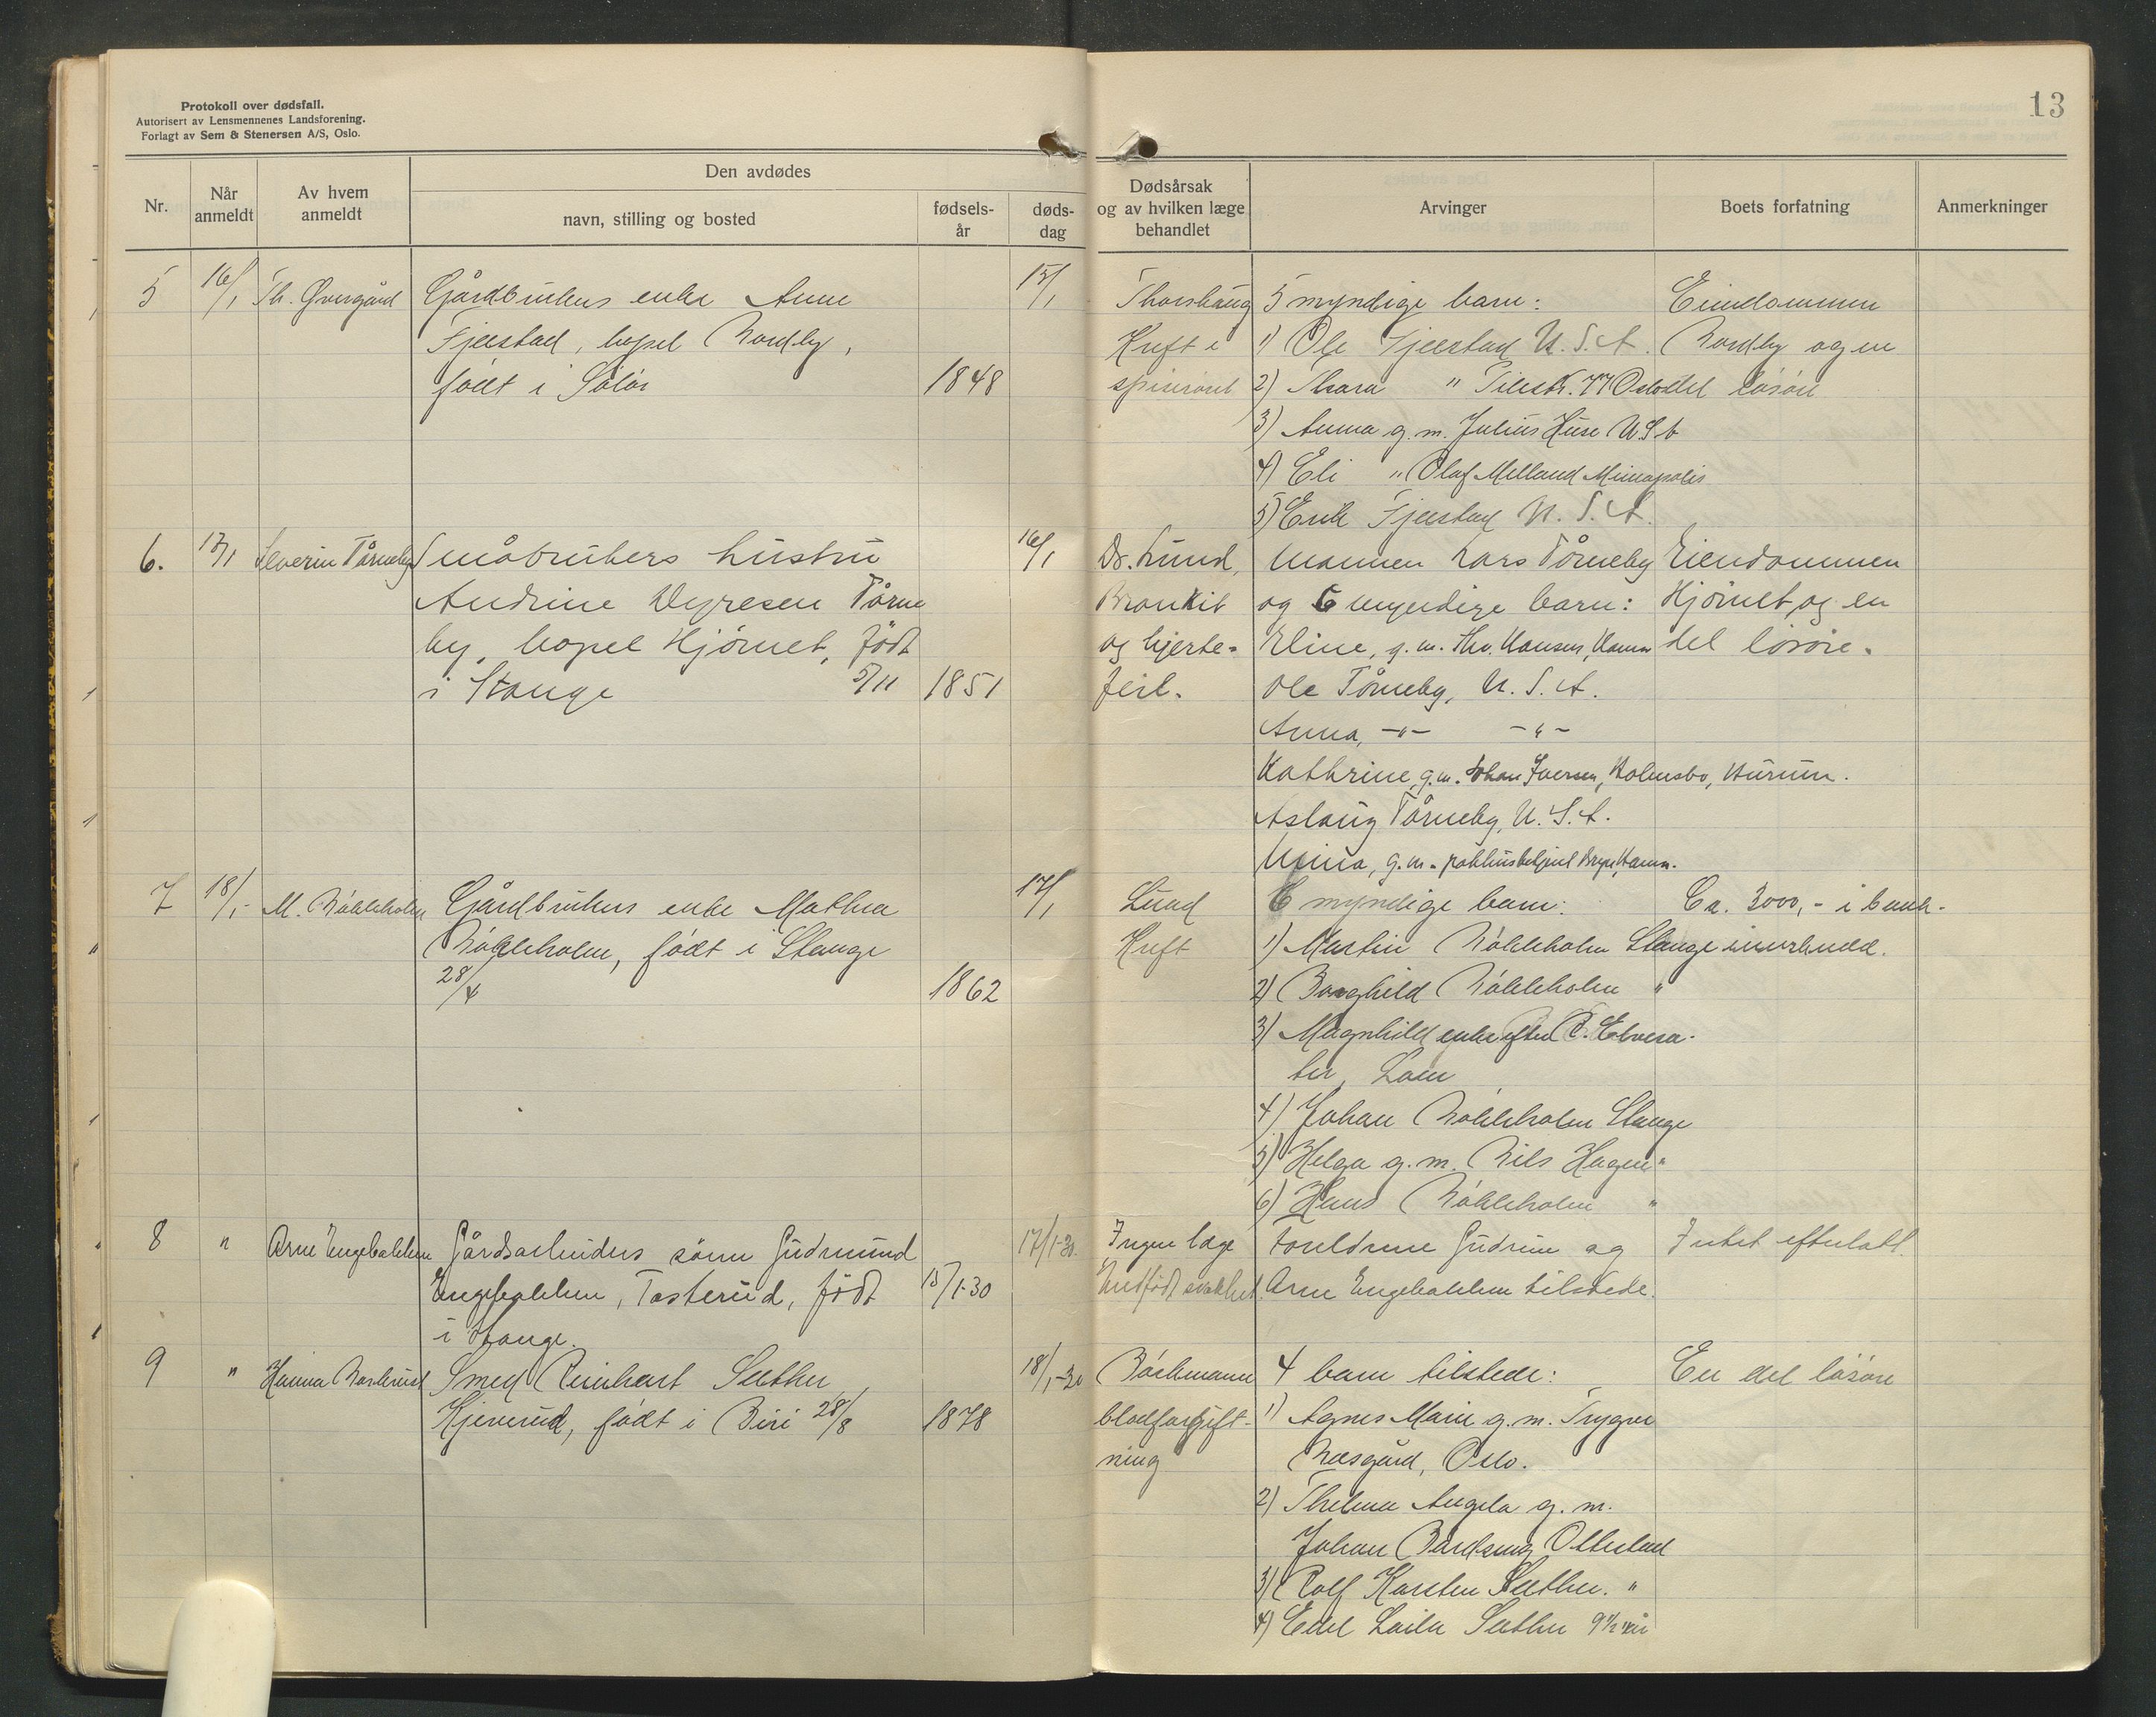 Protokoll over dødsfall.
Autorisert av Lensmennenes Landsforening.
Forlagt av Sem & Stenersen A/S, Oslo.
13
Nr.
Når anmeldt
Av hvem anmeldt
Den avdødes
navn, stilling og bosted
fødsels-
år
døds-
dag
Dødsårsak
og av hvilken læge
behandlet
Arvinger
Boets forfatning
Anmerkninger
5 16/1 Th. Øvergård Gårdbrukers enke Anne
Fjeldstad, bopel Nordby,
født i Solør 1848
15/1
Thorshaug
Kreft i
spiserøret
5 myndige barn:
1) Ole Fjeestad U.S.A.
2) Thora " Pilestr. 77 Oslo
3) Anna g. m. Julius Huse U.S.A
4) Eli " Olaf Melland Minapolis
5) Erik Fjeestad U.S.A.
Eiendommen
Nordby og en
del løsøre
6. 17/1 Severin Tårneby Småbrukers hustru
Andrine Dyresen Tårne
by, bopel Hjørnet, født
i Stange 5/11 1851
16/1
Dr. Lund,
Bronkit
og hjerte-
feil.
Mannen Lars Tårneby
og 6 myndige barn:
Eline, g. m. Thv. Hansen, Hamar
Ole Tårneby, U.S.A.
Anna, -"- -"-
Kathrine, g.m. Johan Iversen, Holmsbo, Hurum.
Aslaug Tårneby, U.S.A.
Mina, g.m. pakkhusbetjent Hamar.
Eiendommen
Hjørnet, og en
del løsøre.
7 18/1- M. Nökleholm Gårdbrukers enke Mathea
Nökleholm, født i Stange
28/4 1862
17/1
Lund
Kreft
6 myndige barn:
1) Martin Nökleholm Stange
2) Borghild Nökleholm "
3) Magnhild enke efter
ter, Lom
4) Johan Nökleholm Stange
5) Helga g. m. Nils Hagen "
6) Hans Nökleholm "
Ca. 3000,- i bank-
innskudd.
8 " Arne Engebakken Gårdsarbeiders sønn Gudmund
Engebakken, Tasterud, født 15/1-30
i Stange.
17/1-30.
Ingen læge
Medfødt svakhet.
Foreldrene Gudrun og
Arne Engebakken tilstede.
Intet efterlatt.
9 " Hanna Smed Reinhart Sæther
Kjeverud, født i Biri 28/8 1878
18/1-30
Böckmann
blodforgift-
ning
4 barn tilstede:
1) Agnes Marie g. m. Trygve
Næsgård, Oslo.
2) Thelma Angela g. m.
Johan Ottestad
3) Rolf Karsten Sæther. "
4) Edel Laila Sæther 9 1/2 år
En del løsøre